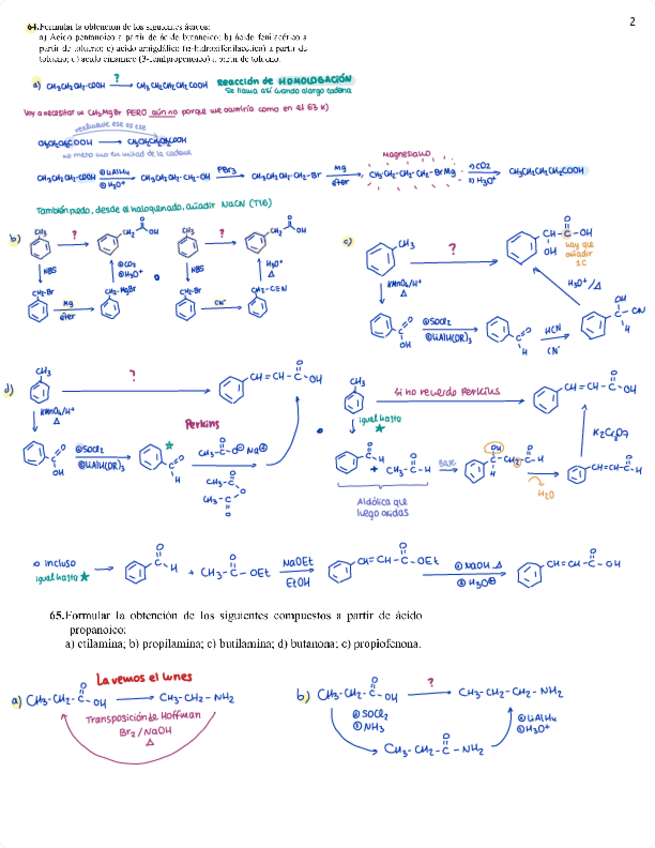 2
64.Formular la obtención de los siguientes ácidos:
a) Ácido pentanoico a partir de ác de butanoico; b) ácido fenilacético a
partir de tolueno; c) ácido amigdálico (α-hidroxifenilacético) a partir de
tolueno; d) ácido cinámico (3-fenilpropenoico) a partir de tolueno.
a) CH3CH2CH2-COOH ? CH3CH2CH2CH2COOH Reacción de HOMOLOGACIÓN
Se llama así cuando alargo cadena
Voy a necesitar un CH3MgBr PERO aún no porque me ocurriría como en el 63 k)
CH3CH2CH2COOH CH3CH2CH2CH2COOH
no meto uno en mitad de la cadena
CH3CH2CH2-COOH ①LiAlH4 ②H3O+ CH3CH2CH2-CH2-OH PBr3 CH3CH2CH2-CH2-Br Mg éter CH3-CH2-CH2-CH2-BrMg ①CO2 ②H3O+ CH3CH2CH2CH2COOH
Magnesiano
También puedo, desde el halogenado, añadir NaCN (T16)
b) CH3 ? CH2 C O OH CH3 ? CH2 C O OH
NBS ①CO2 ②H3O+ NBS H3O+ Δ
CH2-Br Mg éter CH2-MgBr CH2-Br CN- CH2-C≡N
c) CH3 ? CH-C-OH O OH
hay que añadir 1C
KMnO4/H+ Δ H3O+/Δ
C O OH ①SOCl2 ②LiAlH(OR)3 C O H HCN CN- OH C-CN H
d) CH3 ? CH=CH-C-OH O
KMnO4/H+ Δ
Perkins
C O OH ①SOCl2 ②LiAlH(OR)3 C O H CH3-C-O⊖ Na⊕ O
CH3-C O O CH3-C O
CH3 Si no recuerdo Perkins CH=CH-C-OH O
igual hasta ★
K2Cr2O7
C-H O + CH3-C-H O Base OH C-CH2-C-H O H H2O CH=CH-C-H O
Aldólica que
luego oxidas
o incluso
igual hasta ★
C-H O + CH3-C-OEt O NaOEt EtOH CH=CH-C-OEt O ①NaOH Δ ②H3O⊕ CH=CH-C-OH O
65.Formular la obtención de los siguientes compuestos a partir de ácido
propanoico:
a) etilamina; b) propilamina; c) butilamina; d) butanona; e) propiofenona.
La vemos el lunes
a) CH3-CH2-C-OH O CH3-CH2-NH2
Transposición de Hoffman
Br2/NaOH
Δ
b) CH3-CH2-C-OH O ? CH3-CH2-CH2-NH2
①SOCl2
②NH3
①LiAlH4
②H3O+
CH3-CH2-C-NH2 O